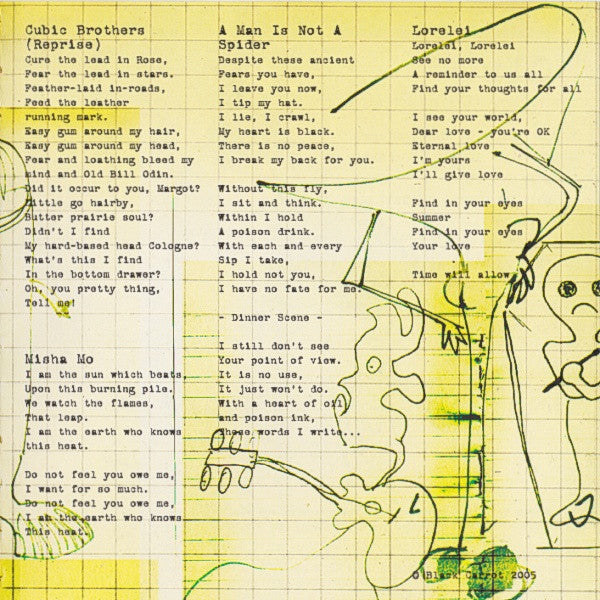 Cubic Brothers
(Reprise)
Cure the lead in Rose,
Fear the lead in stars.
Feather-laid in-roads,
Feed the leather
running mark.
Easy gum around my hair,
Easy gum around my head,
Fear and loathing bleed my
mind and Old Bill Odin.
Did it occur to you, Margot?
Little go hairby,
Butter prairie soul?
Didn't I find
My hard-based head Cologne?
What's this I find
In the bottom drawer?
Oh, you pretty thing,
Tell me!
Misha Mo
I am the sun which beats
Upon this burning pile.
We watch the flames,
That leap.
I am the earth who knows
this heat.
Do not feel you owe me,
I want for so much.
Do not feel you owe me,
I am the earth who knows
This heat.
A Man Is Not A
Spider
Despite these ancient
Fears you have,
I leave you now,
I tip my hat.
I lie, I crawl,
My heart is black.
There is no peace,
I break my back for you.
Without this fly,
I sit and think.
Within I hold
A poison drink.
With each and every
Sip I take,
I hold not you,
I have no fate for me.
- Dinner Scene -
I still don't see
Your point of view.
It is no use,
It just won't do.
With a heart of oil
and poison ink,
These words I write...
Lorelei
Lorelei, Lorelei
See no more
A reminder to us all
Find your thoughts for all
I see your world,
Dear love - you're OK
Eternal love
I'm yours
I'll give love
Find in your eyes
Summer
Find in your eyes
Your love
Time will allow
© Black Carrot 2005